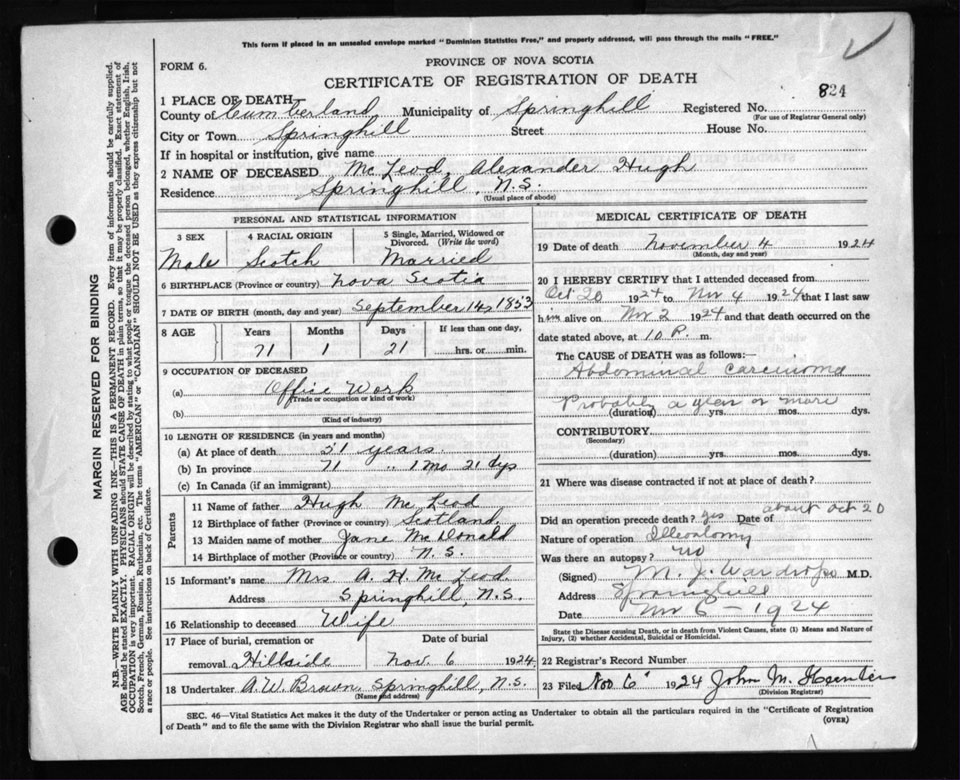 This form if placed in an unsealed envelope marked "Dominion Statistics Free," and properly addressed, will pass through the mails "FREE."
FORM 6.
PROVINCE OF NOVA SCOTIA
CERTIFICATE OF REGISTRATION OF DEATH
824
1 PLACE OF DEATH
County of Cumberland Municipality of Springhill Registered No.
(For use of Registrar General only)
City or Town Springhill Street House No.
If in hospital or institution, give name
2 NAME OF DECEASED McLeod, Alexander Hugh
Residence Springhill, N.S.
(Usual place of abode)
PERSONAL AND STATISTICAL INFORMATION
3 SEX 4 RACIAL ORIGIN 5 Single, Married, Widowed or Divorced. (Write the word)
Male Scotch Married
6 BIRTHPLACE (Province or country) Nova Scotia
7 DATE OF BIRTH (month, day and year) September 14, 1853
8 AGE Years Months Days If less than one day,
71 1 21 hrs. or min.
9 OCCUPATION OF DECEASED
(a) Office Work
(Trade or occupation or kind of work)
(b)
(Kind of industry)
10 LENGTH OF RESIDENCE (in years and months)
(a) At place of death 51 years.
(b) In province 71 " 1 Mo 21 dys
(c) In Canada (if an immigrant)
Parents
11 Name of father Hugh McLeod
12 Birthplace of father (Province or country) Scotland
13 Maiden name of mother Jane McDonald
14 Birthplace of mother (Province or country) N.S.
15 Informant's name Mrs A. H. McLeod.
Address Springhill, N.S.
16 Relationship to deceased Wife
17 Place of burial, cremation or Date of burial
removal Hillside Nov. 6 1924
18 Undertaker A.W. Brown, Springhill, N.S.
(Name and address)
MEDICAL CERTIFICATE OF DEATH
19 Date of death November 4 1924
(Month, day and year)
20 I HEREBY CERTIFY that I attended deceased from
Oct 20 1924 to Nov 4 1924 that I last saw
him alive on Nov 2 1924 and that death occurred on the
date stated above, at 10 P. m.
The CAUSE of DEATH was as follows:—
Abdominal carcinoma
Probably a year or more
(duration) yrs. mos. dys.
CONTRIBUTORY
(Secondary)
(duration) yrs. mos. dys.
21 Where was disease contracted if not at place of death?
Did an operation precede death? yes Date of about Oct 20
Nature of operation
Was there an autopsy? no
(Signed) M. J. Wardrope M.D.
Address Springhill
Date Nov 6 - 1924
State the Disease causing Death, or in death from Violent Causes, state (1) Means and Nature of
Injury, (2) whether Accidental, Suicidal or Homicidal.
22 Registrar's Record Number
23 Filed Nov 6 1924 John M.
(Division Registrar)
SEC. 46—Vital Statistics Act makes it the duty of the Undertaker or person acting as Undertaker to obtain all the particulars required in the "Certificate of Registration
of Death" and to file the same with the Division Registrar who shall issue the burial permit.
(OVER)
MARGIN RESERVED FOR BINDING
N.B.—WRITE PLAINLY WITH UNFADING INK—THIS IS A PERMANENT RECORD. Every item of information should be carefully supplied.
AGE should be stated EXACTLY. PHYSICIANS should STATE CAUSE OF DEATH in plain terms, so that it may be properly classified. Exact statement of
OCCUPATION is very important. RACIAL ORIGIN will be described by stating to what people or tongue the deceased person belonged, whether English, Irish,
Scotch, French, German, Russian, Ruthenian, etc. The terms "AMERICAN" or "CANADIAN" SHOULD NOT BE USED as they express citizenship but not
a race or people. See instructions on back of Certificate.